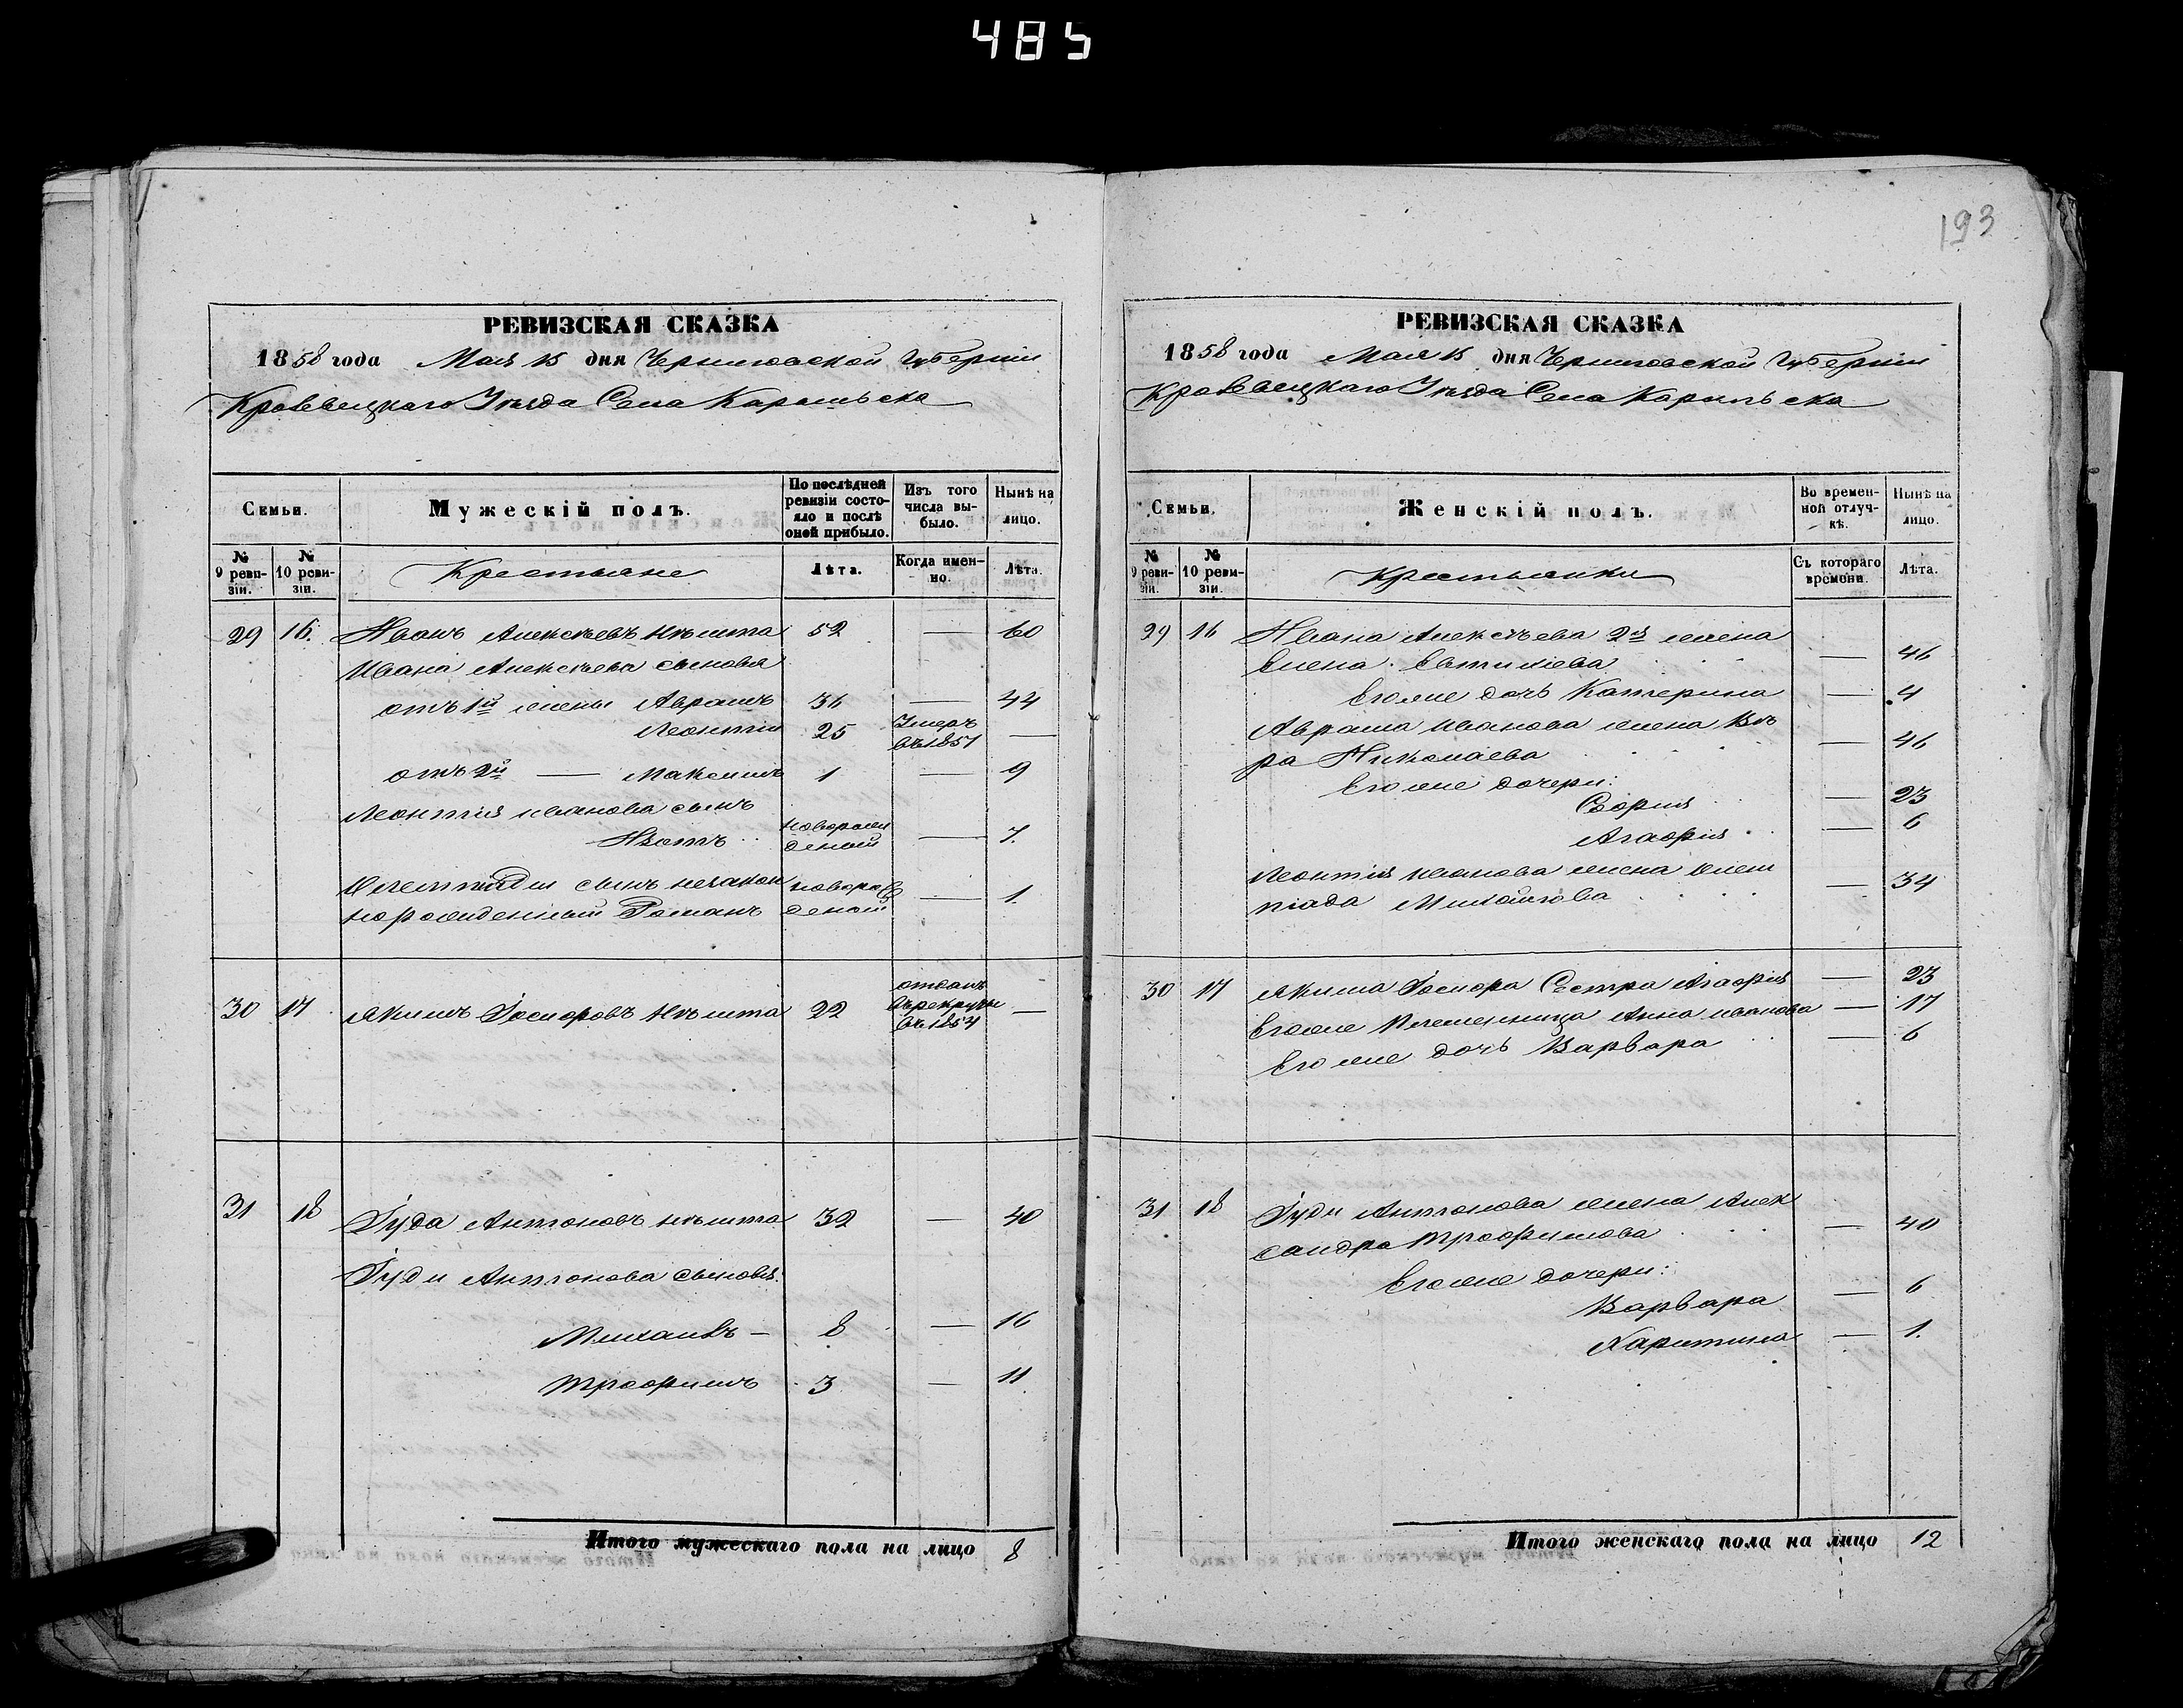 485
193
РЕВИЗСКАЯ СКАЗКА
1858 года Мая 15 дня Черниговской Губернии
Кролевецкаго Уезда Села Карыльска
Семьи. Мужескій полъ. По послѣдней ревизіи состояло и послѣ оной прибыло. Изъ того числа выбыло. Нынѣ на лицо.
№ 9 ревизіи. № 10 ревизіи. Крестьяне Лѣта. Когда именно. Лѣта.
29 16. Иванъ Алексѣевъ 52 — 60
Ивана Алексѣева сыновья
отъ 1й жены Аврамъ 36 — 44
Леонтій 25 Умеръ въ 1857 —
отъ 2й — Максимъ 1 — 9
Леонтія Иванова сынъ
Изотъ новорожденный — 7.
Олимпіады сынъ незакон
норожденный Романъ новорожденный — 1.
30 17 Якимъ Іосифовъ 22 отданъ въ рекруты въ 1854 —
31 18 Іуда Антоновъ 32 — 40
Іуды Антонова сыновья:
Михаилъ — 8 — 16
Трофимъ 3 — 11
Итого мужескаго пола на лицо 8
РЕВИЗСКАЯ СКАЗКА
1858 года Мая 15 дня Черниговской Губернии
Кролевецкаго Уезда Села Карыльска
Семьи. Женскій полъ. Во временной отлучкѣ. Нынѣ на лицо.
№ 9 ревизіи. № 10 ревизіи. Крестьянки Съ котораго времени. Лѣта.
29 16 Ивана Алексѣева 2я жена
Елена Евтихіева — 46
Его же дочь Катерина — 4
Аврама Иванова жена Вѣ
ра Николаева — 46
Его же дочери:
Софія — 23
Агафія — 6
Леонтія Иванова жена Олим
піада Михайлова — 34
30 17 Якима Іосифова Сестра Агафія — 23
Его же Племенница Анна Иванова — 17
Его же дочь Варвара — 6
31 18 Іуды Антонова жена Алек
сандра Трофимова — 40
Его же дочери:
Варвара — 6
Харитина — 1.
Итого женскаго пола на лицо 12